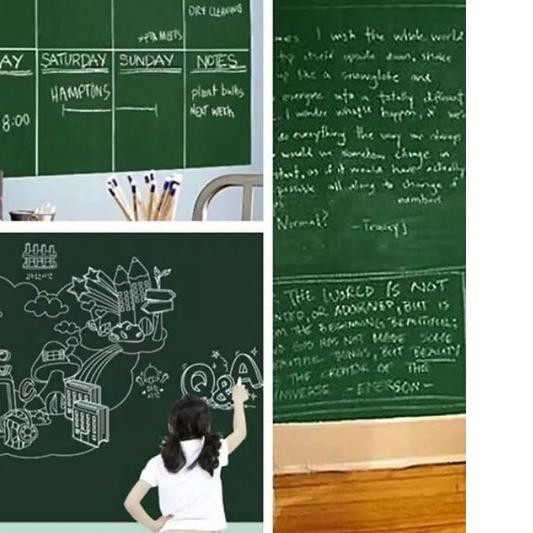 DRY CLEANING
AY SATURDAY SUNDAY NOTES
HAMPTONS
plant bulbs
NEXT WEEK
8:00
Q&A
I wish the whole world
itself upside down, shake
like a snowglobe and
everyone into a totally different
I wonder what'd happen, if we'd
do everything the way we always
would we somehow change in
as if it would have actually
possible all along to change
Normal? -Tracey]
THE WORLD IS NOT
OR ADORNED, BUT IS
THE BEGINNING BEAUTIFUL;
GOD HAS NOT MADE SOME
THINGS, BUT BEAUTY
THE CREATOR OF THE
UNIVERSE -EMERSON-